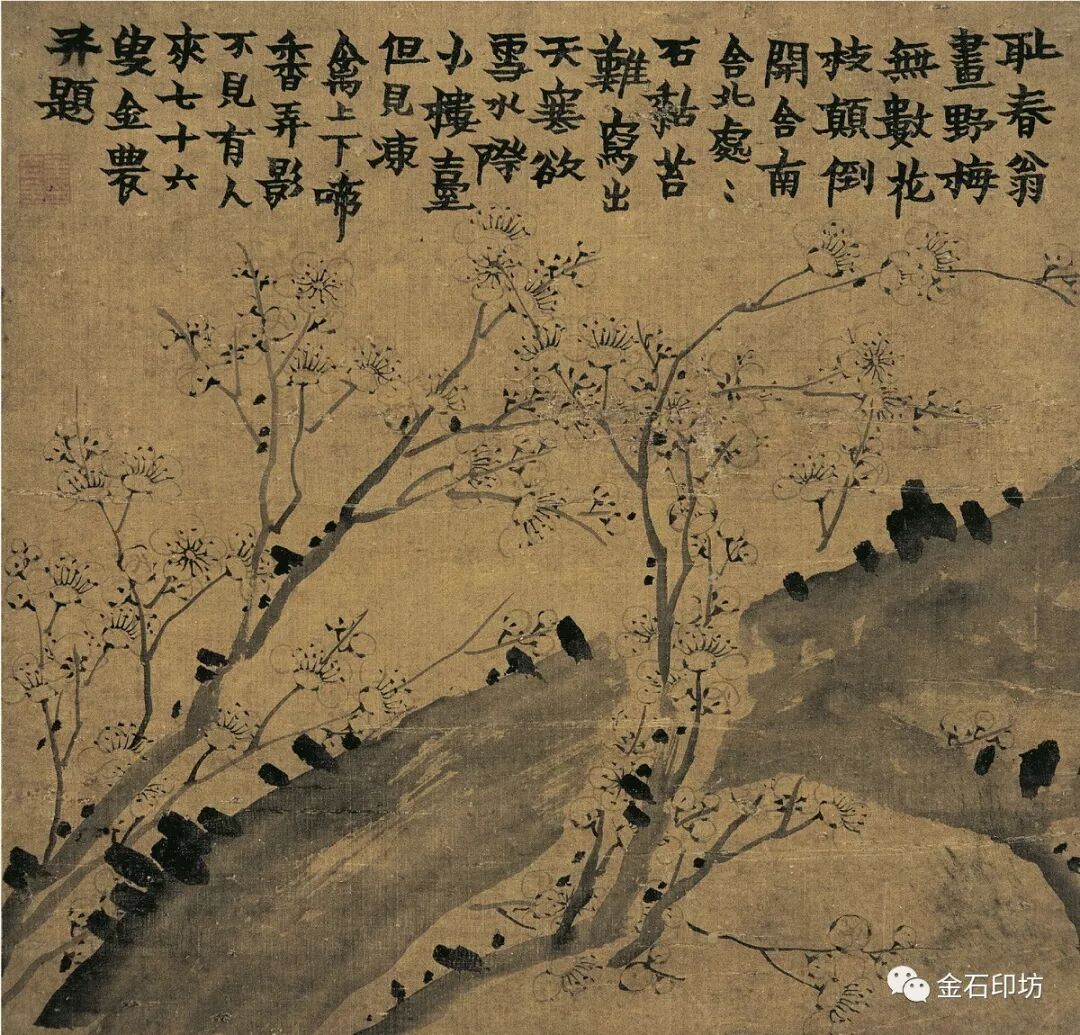 耻春翁
畫野梅
無數花
枝顛倒
開舍南
舍北處〻
石黏苔
難寫出
天寒欲
雪水際
小樓臺
但見凍
禽上下啼
香弄影
不見有人
來七十六
叟金農
并題
金石印坊